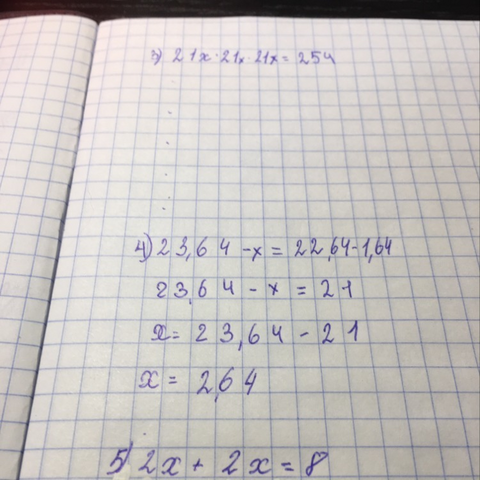 3) 21x · 21x · 21x = 254
4) 23,64 - x = 22,64 - 1,64
23,64 - x = 21
x = 23,64 - 21
x = 2,64
5) 2x + 2x = 8